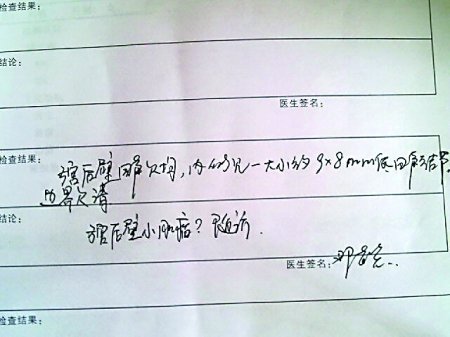 检查结果：
结论：
医生签名：
检查结果：
宫后壁回声欠均，内可见一大小约9×8mm低回声结节
边界欠清
结论：
宫后壁小肌瘤？随诊.
医生签名：邓
检查结果：